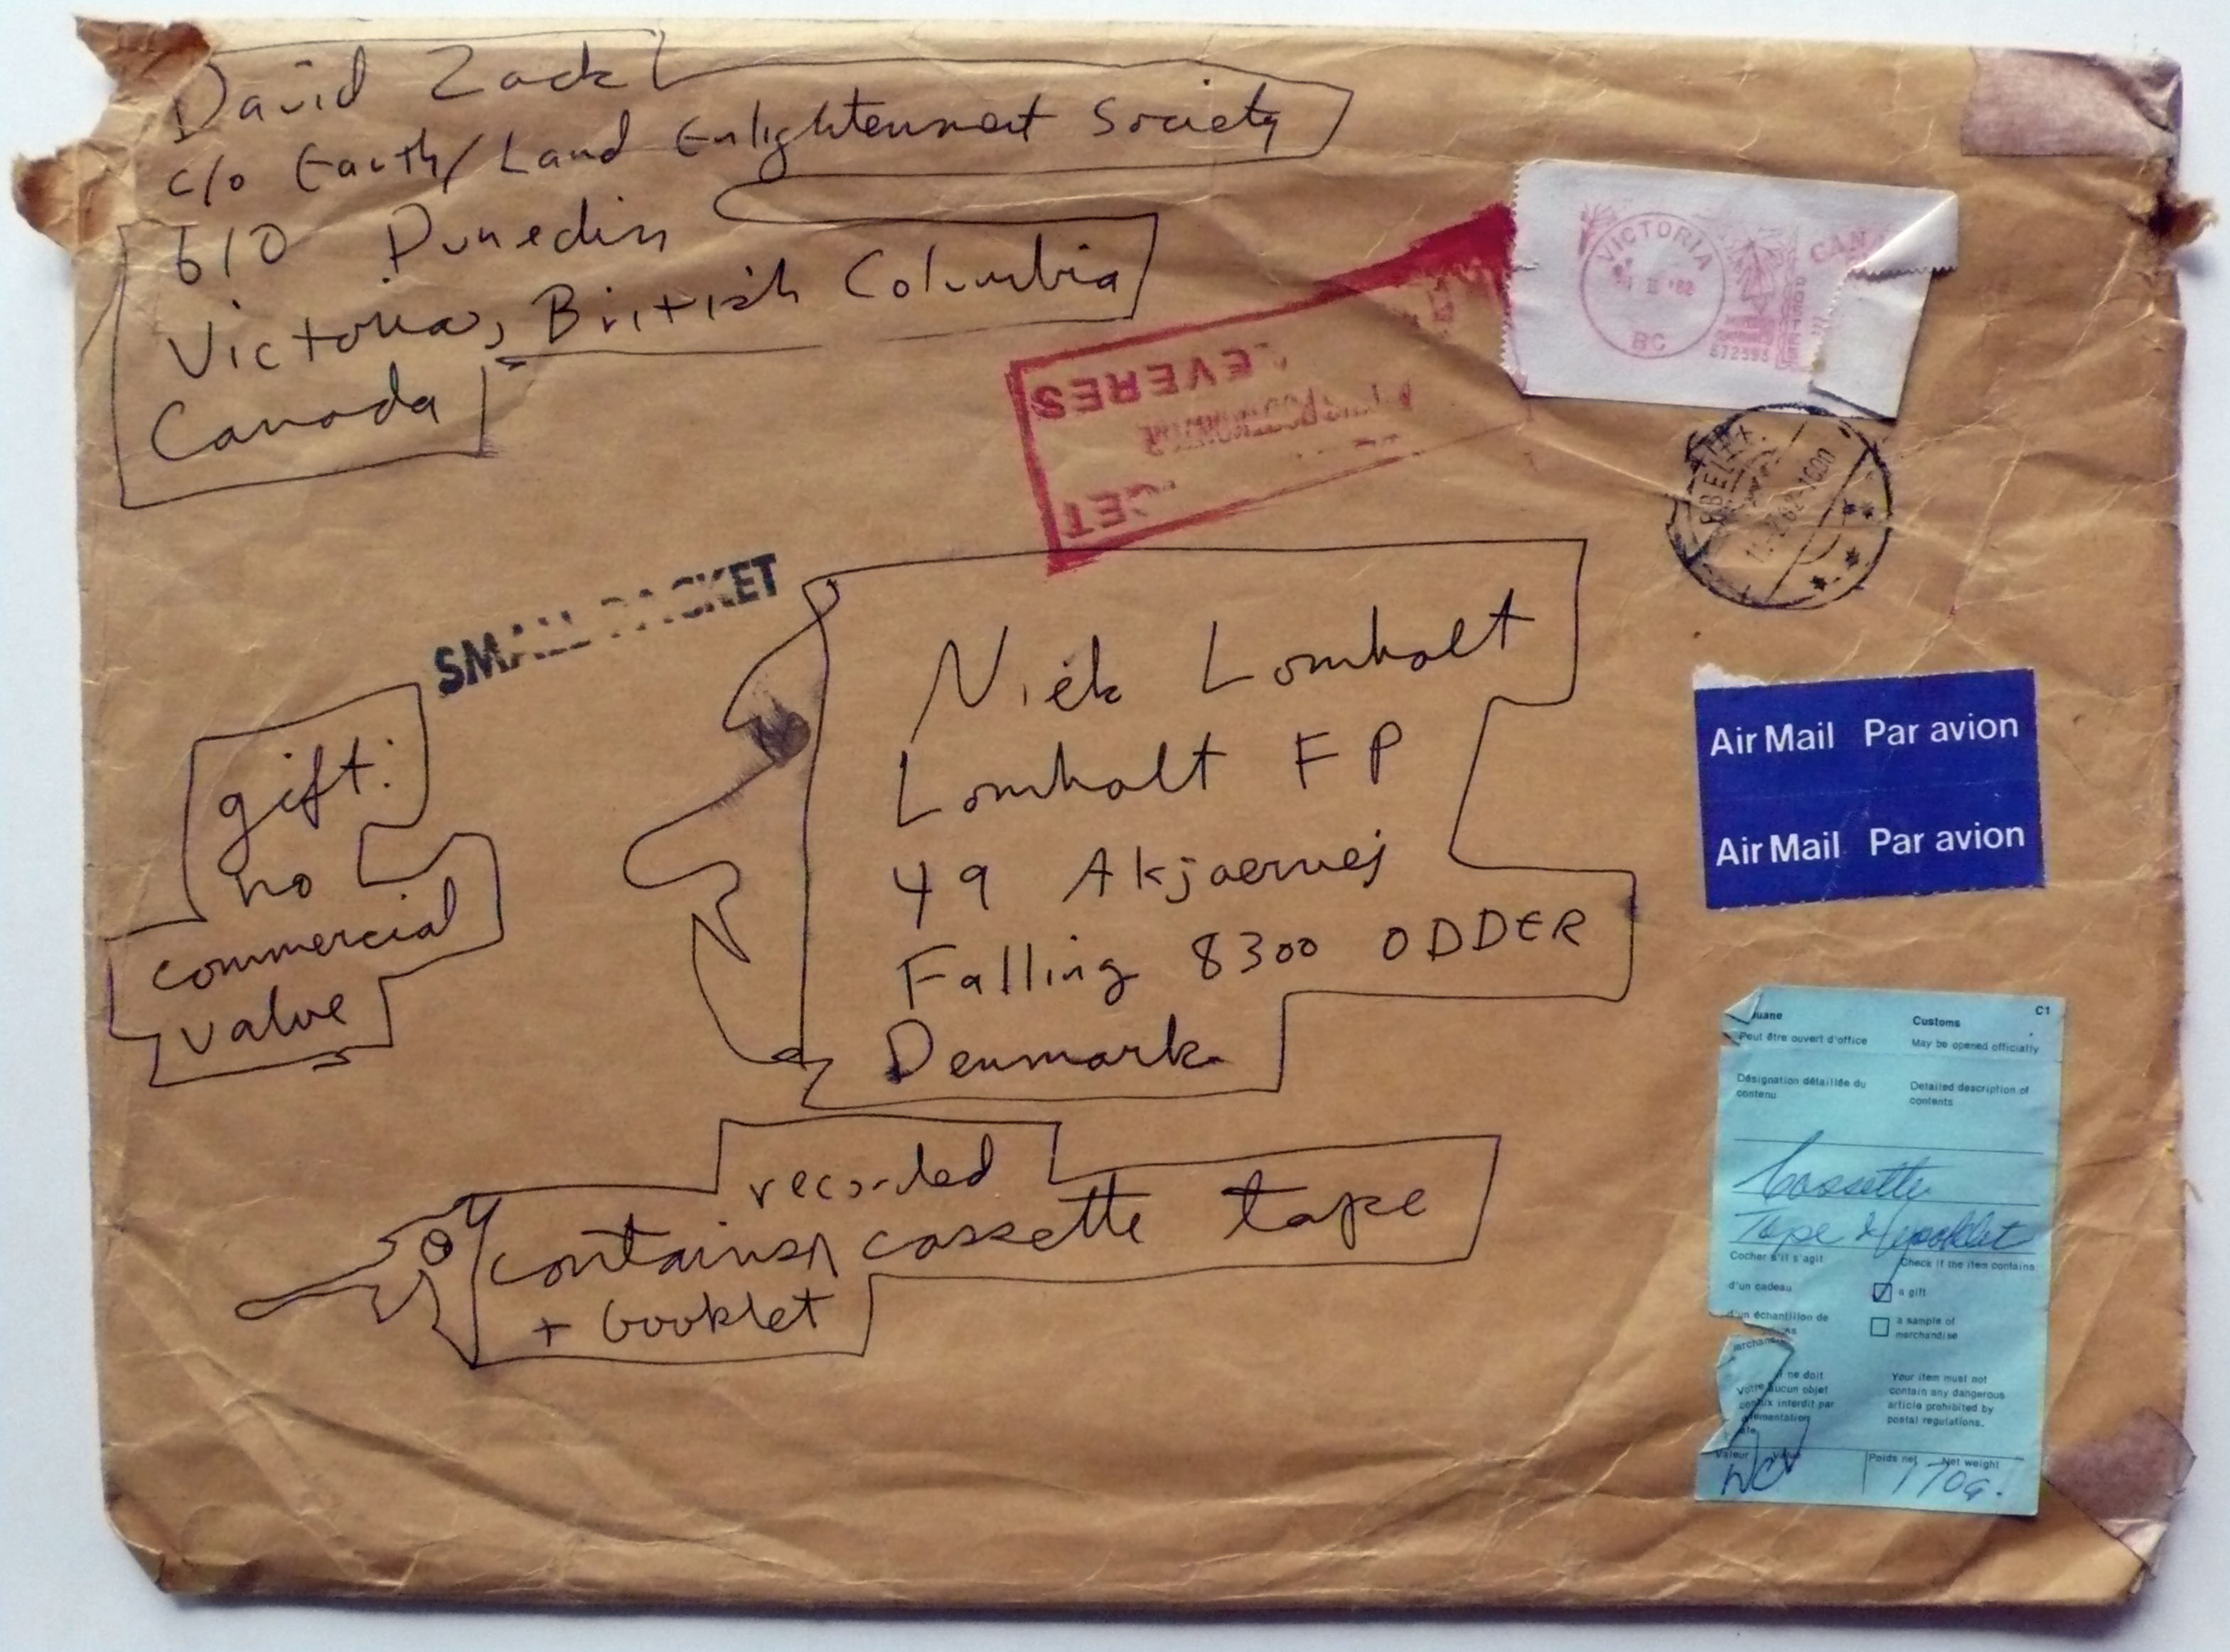 David Zack
c/o Earth/Land Enlightenment Society
610 Dunedin
Victoria, British Columbia
Canada
VICTORIA
BC
572393
LEVERES
SMALL PACKET
Niels Lomholt
Lomholt FP
49 Akjaervej
Falling 8300 ODDER
Denmark
gift:
no
commercial
value
recorded
contains cassette tape
+ booklet
Air Mail Par avion
Air Mail Par avion
C1
Customs
Peut être ouvert d'office May be opened officially
Désignation détaillée du contenu
Detailed description of contents
Cassette
Tape & booklet
Cocher s'il s'agit Check if the item contains
d'un cadeau a gift
d'un échantillon de
a sample of merchandise
ne doit
aucun objet
interdit par
Your item must not
contain any dangerous
article prohibited by
postal regulations.
Valeur
Poids net Net weight
170g.